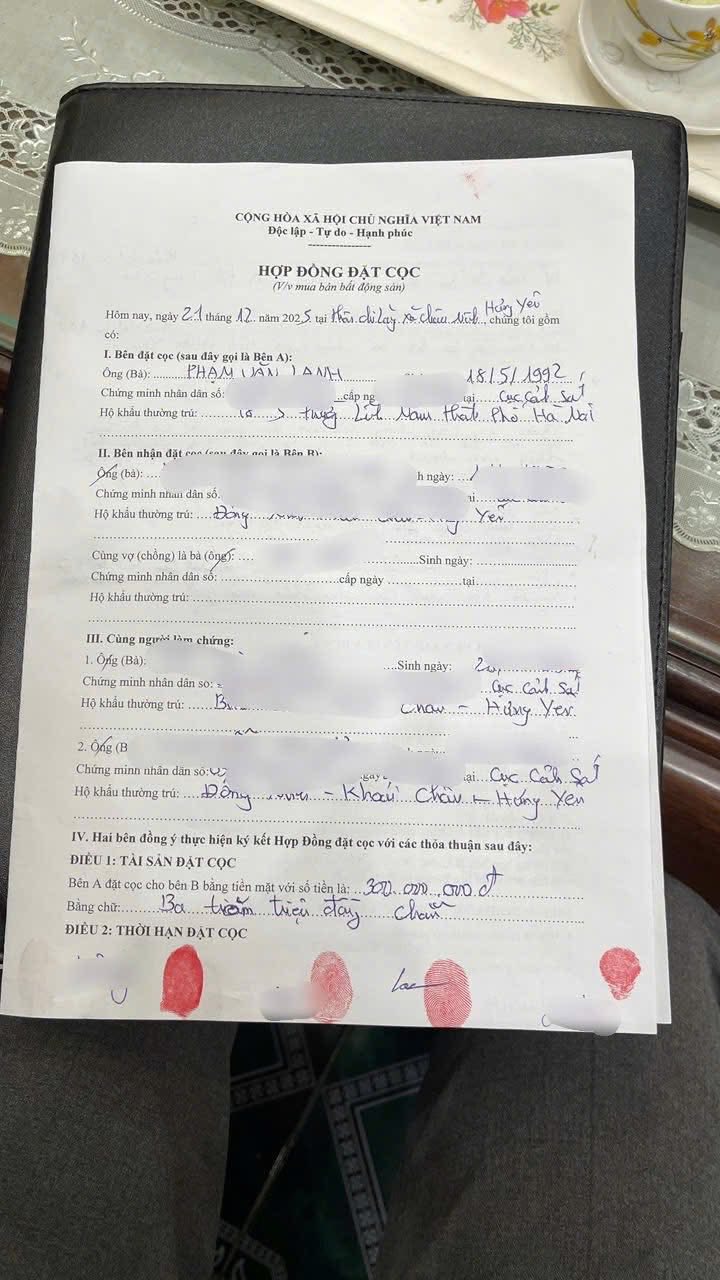 CỘNG HÒA XÃ HỘI CHỦ NGHĨA VIỆT NAM
Độc lập - Tự do - Hạnh phúc
HỢP ĐỒNG ĐẶT CỌC
(V/v mua bán bất động sản)
Hôm nay, ngày 21 tháng 12 năm 2025 tại thôn xã Châu Ninh, Hưng Yên, chúng tôi gồm
có:
I. Bên đặt cọc (sau đây gọi là Bên A):
Ông (Bà): PHẠM VĂN 18/5/1992
Chứng minh nhân dân số: cấp ng tại Cục Cảnh Sát
Hộ khẩu thường trú: Nam thành Phố Hà Nội
II. Bên nhận đặt cọc (sau đây gọi là Bên B):
Ông (bà): h ngày:
Chứng minh nhân dân số.
Hộ khẩu thường trú: Đông Yên
Cùng vợ (chồng) là bà (ông): Sinh ngày:
Chứng minh nhân dân số: cấp ngày tại
Hộ khẩu thường trú:
III. Cùng người làm chứng:
1. Ông (Bà): Sinh ngày:
Chứng minh nhân dân số: Cục Cảnh Sát
Hộ khẩu thường trú: - Hưng Yên
2. Ông (B
Chứng minh nhân dân số: ại Cục Cảnh Sát
Hộ khẩu thường trú: Đông - Khoái Châu - Hưng Yên
IV. Hai bên đồng ý thực hiện ký kết Hợp Đồng đặt cọc với các thỏa thuận sau đây:
ĐIỀU 1: TÀI SẢN ĐẶT CỌC
Bên A đặt cọc cho bên B bằng tiền mặt với số tiền là: 300.000.000 đ
Bằng chữ: Ba trăm triệu đồng chẵn
ĐIỀU 2: THỜI HẠN ĐẶT CỌC